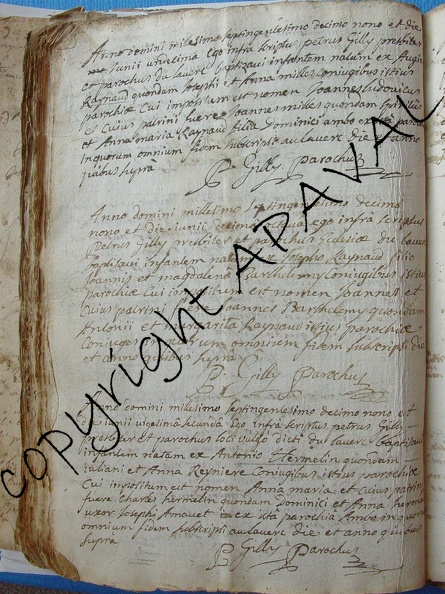 Anno domini millesimo septingentesimo decimo nono et die
junii undecima ego infra scriptus petrus Gilly presbiter
et parochus du lavere baptizavi infantem natum ex Augie
Raynaud quondam Josephi et Anna miles coniugibus istius
parochiæ Cui impositum est nomen Joannes ludovicus
et Cuius patrini fuere Joannes miles quondam
et Anna maria Raynaud filia Dominici ambo ex ista parochia
in quorum omnium fidem subscripsi au lavere die et anno
quibus supra
P Gilly Parochus
Anno domini millesimo septingentesimo decimo
nono et die junii decima ego infrà scriptus
Petrus Gilly presbiter parochus Ecclesiæ du lavere
baptisavi infantem natum ex Josepho Raynaud filio
Joannis et magdalena Barthelemy Coniugibus istius
parochiæ Cui impositum est nomen Joannes et
Cuius patrini Joannes Barthelemy quondam
Antonii et margarita Raynaud istius parochiæ
Coniuges quorum omnium fidem subscripsi die
et anno quibus supra
P. Gilly Parochus
Anno domini millesimo septingentesimo decimo nono et
die junii vigesima secunda Ego infra scriptus petrus Gilly
presbiter et parochus loci vulgo dicti du lavere baptisavi
infantem natam ex Antonio Hermelin quondam
juliani et Anna Reyniere Coniugibus istius parochiæ
Cui impositum est nomen Anna maria et Cuius patrini
fuere Charles hermelin quondam Dominici et Anna
uxor Josephi Amavet ex istâ parochia Ambo in quorum
omnium fidem subscripsi au lavere die et anno quibus
supra
P Gilly Parochus
copyright APAVAL